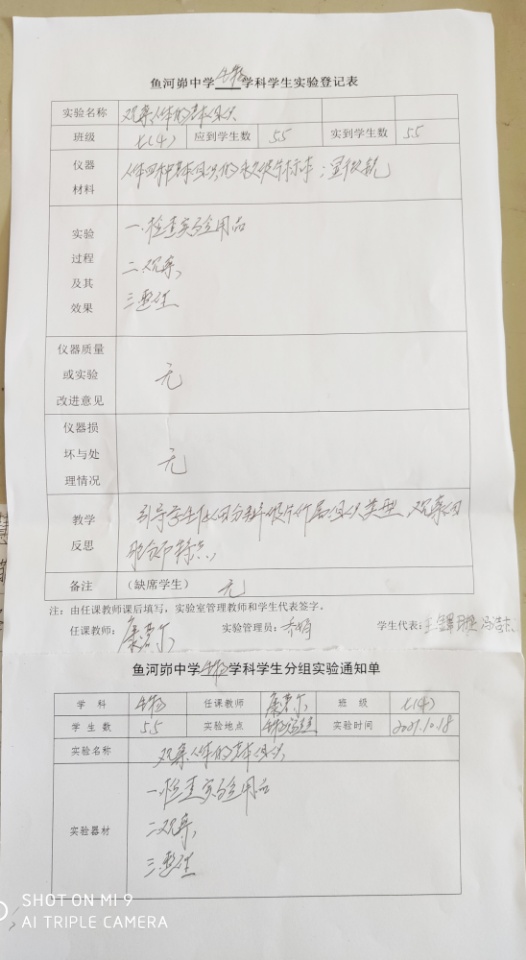 鱼河峁中学生物学科学生实验登记表
实验名称 观察人体的基本组织
班级 七(4) 应到学生数 55 实到学生数 55
仪器材料 人体四种基本组织的永久玻片标本;显微镜
实验过程及其效果 一.检查实验用品
二.观察
三.整理
仪器质量或实验改进意见 无
仪器损坏与处理情况 无
教学反思 引导学生
备注 (缺席学生) 无
注:由任课教师课后填写,实验室管理教师和学生代表签字。
任课教师: 实验管理员: 学生代表:
鱼河峁中学生物学科学生分组实验通知单
学科 生物 任课教师 班级 七(4)
学生数 55 实验地点 实验时间 2021.10.18
实验名称 观察人体的基本组织
实验器材 一.检查实验用品
二.观察
三.整理
SHOT ON MI 9
AI TRIPLE CAMERA